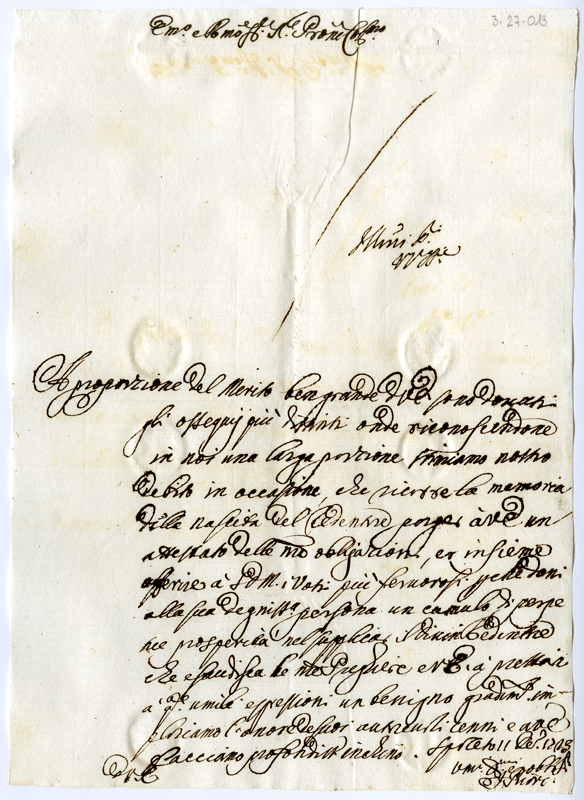 3-27-013
Em.o e Rmo Sig.r Sig.r Pron Col.mo
A proporzione del Merito ben grande di V.E. sono dovuti
gli ossequij più distinti onde riconoscendone
in noi una larga porzione stimiamo nostro
debito in occasione, che ricorre la memoria
della nascita del Redentore porger à V.E. un
attestato delle nre obligazioni, et insieme
offerire à S.D.M. i Voti più fervorosi, p che doni
alla sua degniss.a persona un cumulo di perpe
tue prosperità nel supplicar il Divin Redentore
che esaudisca le nre Preghiere e V.E. à prestar
a q.te umili espressioni un benigno gradim.to im-
ploriamo l'onore de suoi autorevoli cenni e à V.E.
facciamo profondiss inchino. Spoleto 11 Xbre 1703
Di V.E.